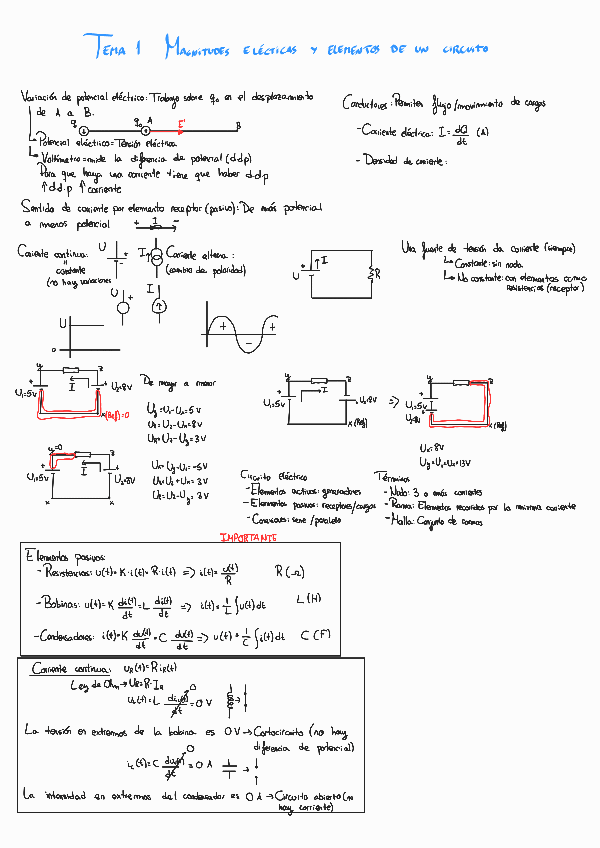 TEMA 1 MAGNITUDES ELÉCTICAS Y ELEMENTOS DE UN CIRCUITO
Variación de potencial eléctrico: Trabajo sobre q₀ en el desplazamiento
de A a B.
q q₀ A E B
Potencial eléctrico = Tensión eléctrica
Voltímetro = mide la diferencia de potencial (d.d.p)
Para que haya una corriente tiene que haber d.d.p
↑ d.d.p ↑ corriente
Conductores: Permiten flujo/movimiento de cargas
- Corriente eléctrica: I = dQ/dt (A)
- Densidad de corriente:
Sentido de corriente por elemento receptor (pasivo): De más potencial
a menos potencial + I -
Corriente continua: U +
"
constante
(no hay variaciones
I Corriente alterna:
(cambia de polaridad)
U + I
U
0
+ - +
U I R
Una fuente de tensión da corriente (siempre)
Constante: sin nada
No constante: con elementos como
resistencias (receptor)
y z
U₁=5V I U₂=8V
x (Ref)=0
De mayor a menor
Uy = U₁ - Ux = 5V
Uz = U₂ - Ux = 8V
UR = Uz - Uy = 3V
y=0 z
U₁=5V I U₂=8V
x x
Ux = Uy - U₁ = -5V
Uz = U₂ + Ux = 3V
UR = Uz - Uy = 3V
y z
U₁=5V I U₂=8V
x (Ref)
=>
y z
U₁=5V
U₂=8V
x (Ref)
Ux = 8V
Uy = U₁ + U₂ = 13V
Circuito eléctrico
- Elementos activos: generadores
- Elementos pasivos: receptores/cargas
- Conexiones: serie / paralelo
Términos
- Nudo: 3 o más corrientes
- Rama: Elementos recorridos por la misma corriente
- Malla: Conjunto de ramas
IMPORTANTE
Elementos pasivos:
- Resistencias: u(t) = K · i(t) = R · i(t) => i(t) = u(t)/R R (Ω)
- Bobinas: u(t) = K di(t)/dt = L di(t)/dt => i(t) = 1/L ∫ u(t) dt L (H)
- Condensadores: i(t) = K du(t)/dt = C du(t)/dt => u(t) = 1/C ∫ i(t) dt C (F)
Corriente continua: uR(t) = R iR(t)
Ley de Ohm → UR = R · IR
uL(t) = L diL(t)/dt 0 = 0 V
La tensión en extremos de la bobina es 0 V → Cortocircuito (no hay
diferencia de potencial)
ic(t) = C duc(t)/dt 0 = 0 A
La intensidad en extremos del condensador es 0 A → Circuito abierto (no
hay corriente)